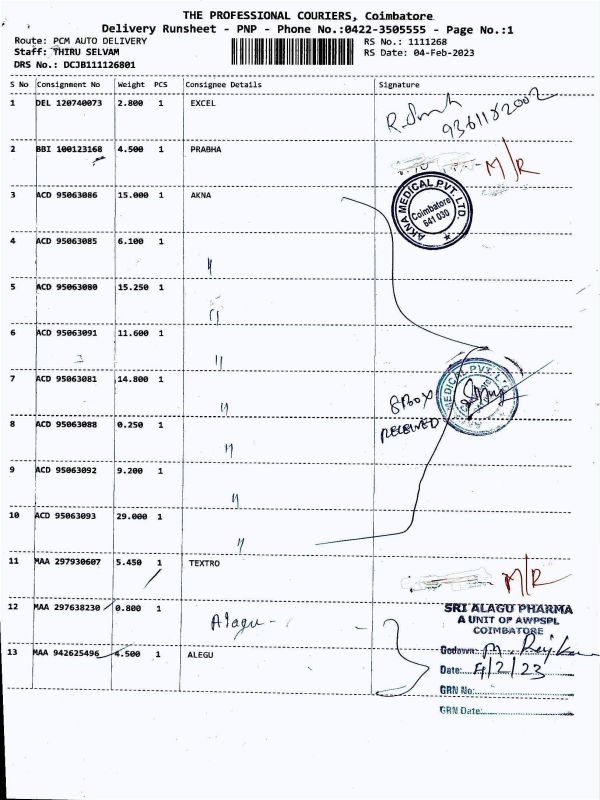 THE PROFESSIONAL COURIERS, Coimbatore
Delivery Runsheet - PNP - Phone No.:0422-3505555 - Page No.:1
Route: PCM AUTO DELIVERY RS No.: 1111268
Staff: THIRU SELVAM RS Date: 04-Feb-2023
DRS No.: DCJB111126801
S No Consignment No Weight PCS Consignee Details Signature
1 DEL 120740073 2.800 1 EXCEL
9361182002
2 BBI 100123168 4.500 1 PRABHA M/R
3 ACD 95063086 15.000 1 AKNA
AKNA MEDICAL PVT. LTD. Coimbatore 641 030
4 ACD 95063085 6.100 1
"
5 ACD 95063080 15.250 1
"
6 ACD 95063091 11.600 1
"
7 ACD 95063081 14.800 1
"
8 Box
RECEIVED
8 ACD 95063088 0.250 1
"
9 ACD 95063092 9.200 1
"
10 ACD 95063093 29.000 1
"
11 MAA 297930607 5.450 1 TEXTRO M/R
12 MAA 297638230 0.800 1 Alagu -
SRI ALAGU PHARMA
A UNIT OF AWPSPL
COIMBATORE
13 MAA 942625496 4.500 1 ALEGU
Godown:
Date: 4/2/23
GRN No:
GRN Date: